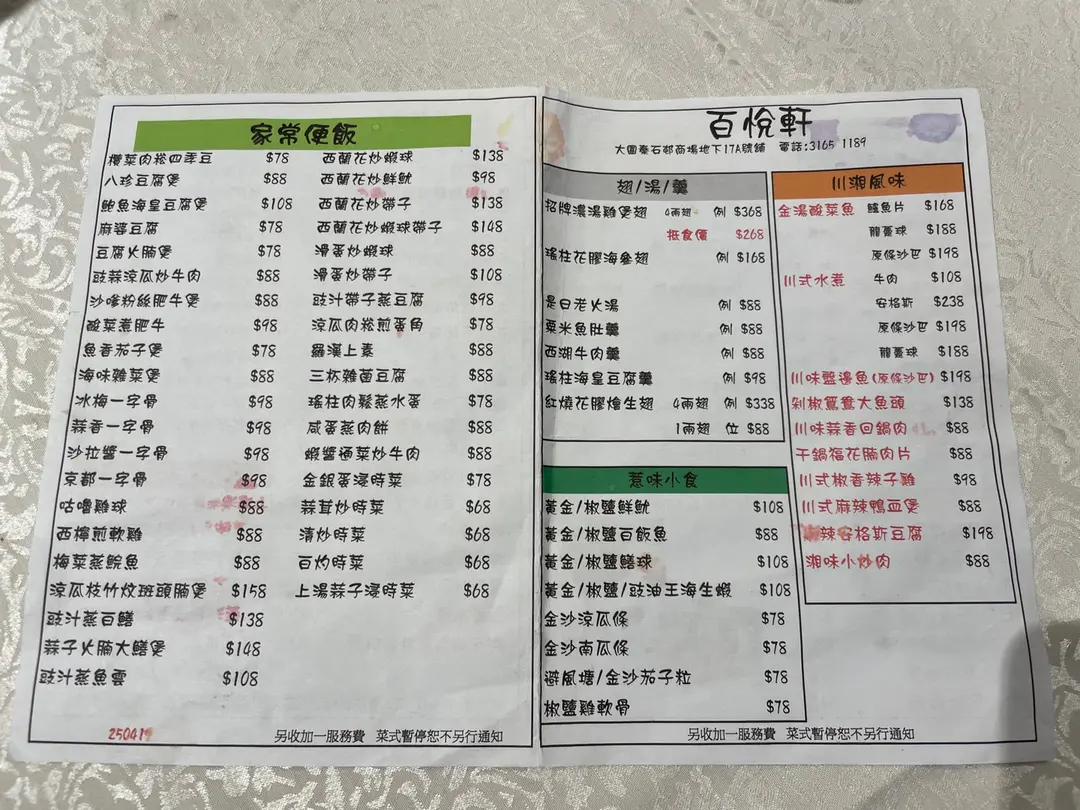 家常便飯
欖菜肉崧四季豆 $78
八珍豆腐煲 $88
鮑魚海皇豆腐煲 $108
麻婆豆腐 $78
豆腐火腩煲 $78
豉蒜涼瓜炒牛肉 $88
沙嗲粉絲肥牛煲 $88
酸菜煮肥牛 $98
魚香茄子煲 $78
海味雜菜煲 $88
冰梅一字骨 $98
蒜香一字骨 $98
沙拉醬一字骨 $98
京都一字骨 $98
咕嚕雞球 $88
西檸煎軟雞 $88
梅菜蒸鯇魚 $88
涼瓜枝竹炆斑頭腩煲 $158
豉汁蒸白鱔 $138
蒜子火腩大鱔煲 $148
豉汁蒸魚雲 $108
西蘭花炒蝦球 $138
西蘭花炒鮮魷 $98
西蘭花炒帶子 $138
西蘭花炒蝦球帶子 $148
滑蛋炒蝦球 $88
滑蛋炒帶子 $108
豉汁帶子蒸豆腐 $98
涼瓜肉崧煎蛋角 $78
羅漢上素 $88
三杯雜菌豆腐 $88
瑤柱肉鬆蒸水蛋 $78
咸蛋蒸肉餅 $88
蝦醬通菜炒牛肉 $88
金銀蛋浸時菜 $78
蒜茸炒時菜 $68
清炒時菜 $68
白灼時菜 $68
上湯蒜子浸時菜 $68
250419
另收加一服務費 菜式暫停恕不另行通知
百悅軒
大圍秦石邨商場地下17A號舖 電話:3165 1189
翅/湯/羹
招牌濃湯雞煲翅 4兩翅 例 $368
抵食價 $268
瑤柱花膠海參翅 例 $168
是日老火湯 例 $88
粟米魚肚羹 例 $88
西湖牛肉羹 例 $88
瑤柱海皇豆腐羹 例 $98
紅燒花膠燴生翅 4兩翅 例 $338
1兩翅 位 $88
惹味小食
黃金/椒鹽鮮魷 $108
黃金/椒鹽百飯魚 $88
黃金/椒鹽鱔球 $108
黃金/椒鹽/豉油王海生蝦 $108
金沙涼瓜條 $78
金沙南瓜條 $78
避風塘/金沙茄子粒 $78
椒鹽雞軟骨 $78
川湘風味
金湯酸菜魚 鱸魚片 $168
龍躉球 $188
原條沙巴 $198
川式水煮 牛肉 $108
安格斯 $238
原條沙巴 $198
龍躉球 $188
川味盤邊魚(原條沙巴) $198
剁椒鴛鴦大魚頭 $138
川味蒜香回鍋肉 $88
干鍋福花腩肉片 $88
川式椒香辣子雞 $98
川式麻辣鴨血煲 $88
辣安格斯豆腐 $198
湘味小炒肉 $88
另收加一服務費 菜式暫停恕不另行通知